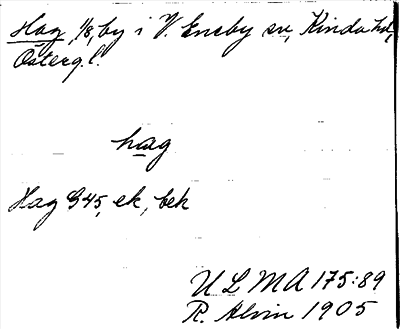 Hag 1/8, by i V. Eneby sn, Kinda hd,
Österg. l.
hag
Hag G45, ek, bek
ULMA 175:89
R. Alvin 1905